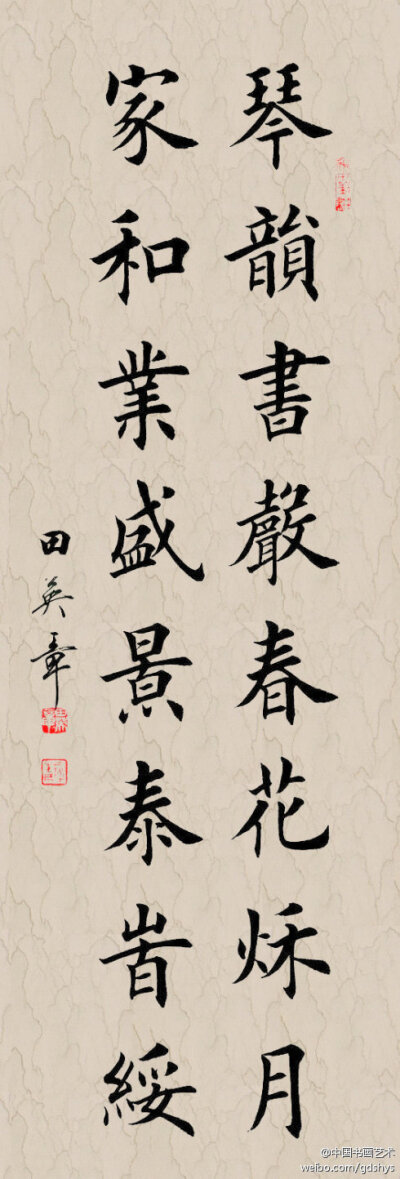 琴韻書聲春花秌月
家和業盛景泰旹綏
田英章
@中国书画艺术
weibo.com/gdshys